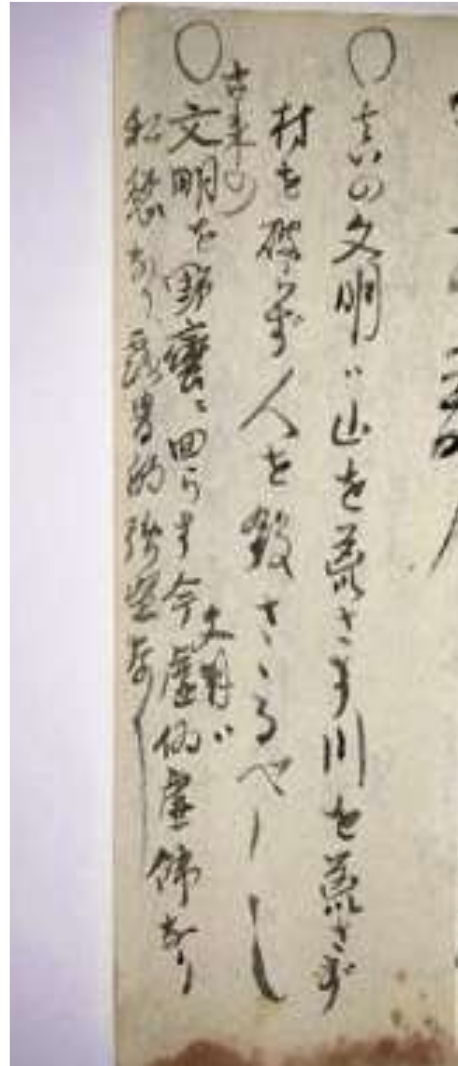 ○真の文明ハ山を荒さず川を荒さず
村を破らず人を殺さゝるべし
○古来の文明を野蠻ニ回らす今文明ハ虚偽虚飾なり
私慾なり露骨的強盗なり